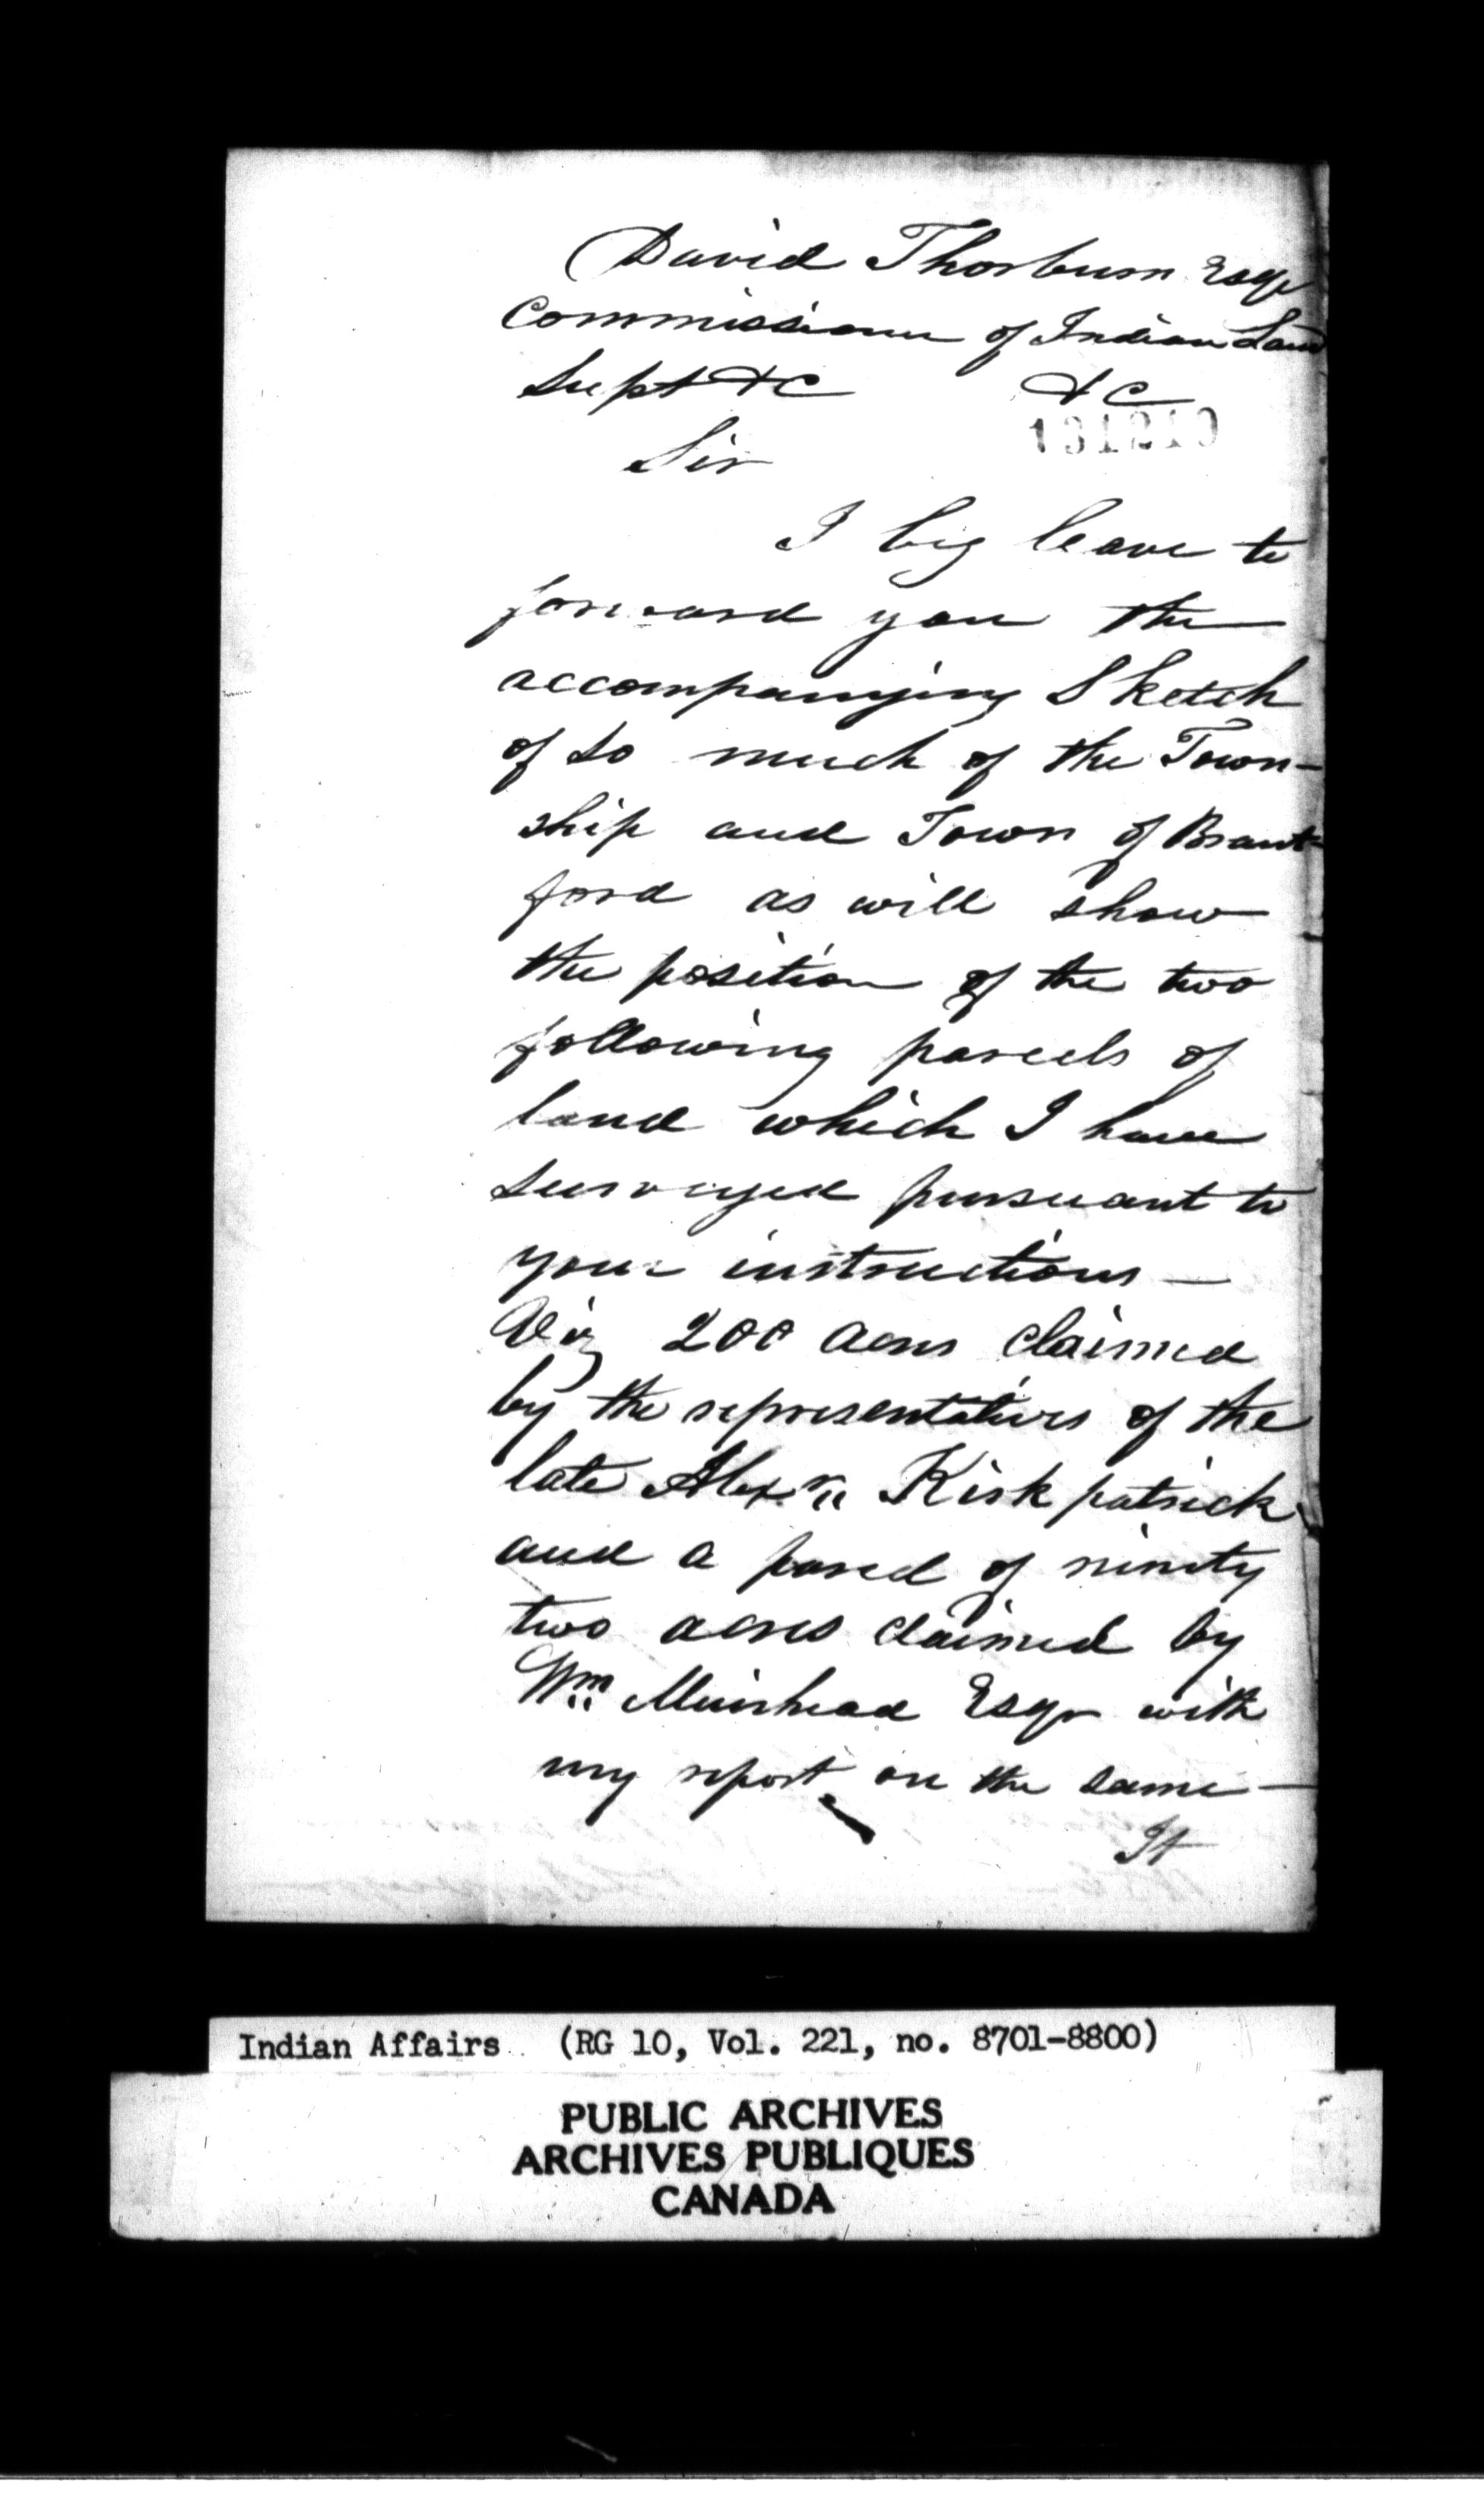 David Thorburn Esqr
Commissioner of Indian Land
Supt &C &C
131210
Sir
I beg leave to
forward you the
accompanying Sketch
of so much of the Town-
ship and Town of Brant-
ford as will show
the position of the two
following parcels of
land which I have
surveyed pursuant to
your instructions —
Viz 200 acres claimed
by the representatives of the
late Alexr Kirkpatrick
and a parcel of ninety
two acres claimed by
Wm Muirhead Esqr with
my report on the same —
It
Indian Affairs (RG 10, Vol. 221, no. 8701-8800)
PUBLIC ARCHIVES
ARCHIVES PUBLIQUES
CANADA